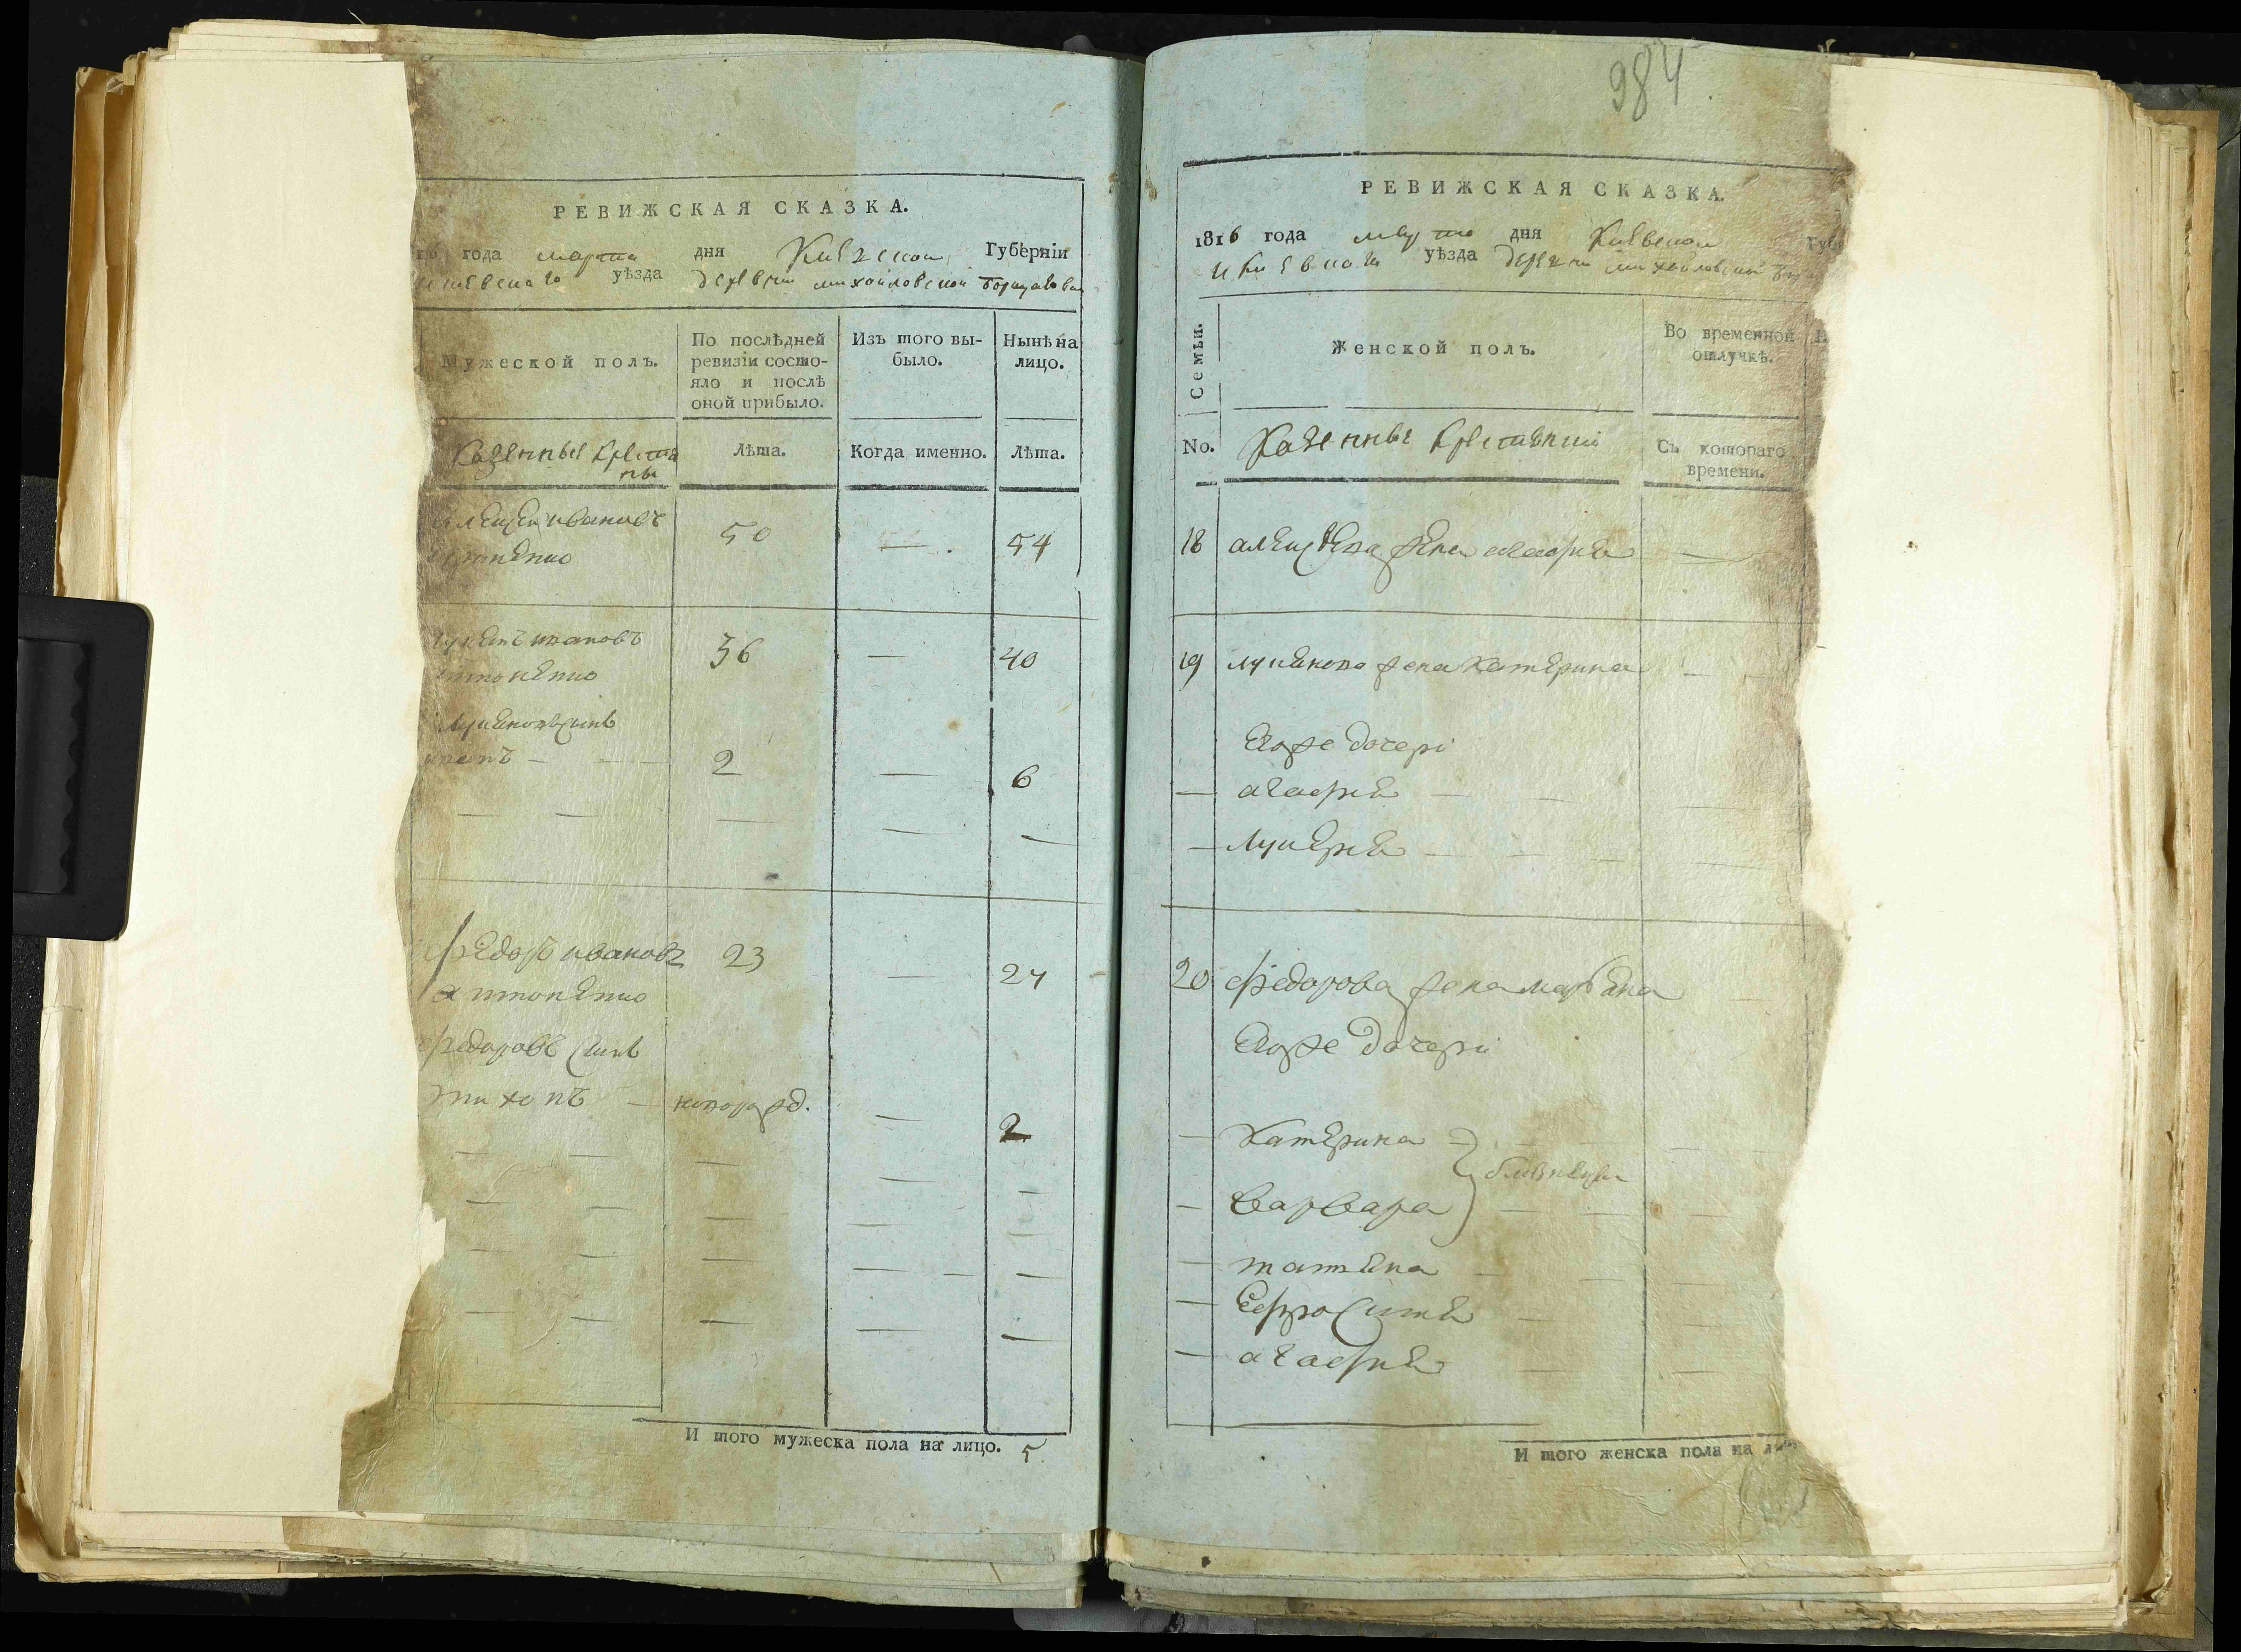 984
РЕВИЖСКАЯ СКАЗКА.
16 года марта дня Киевской Губерніи
уѣзда деревни михайловской
Мужеской полъ.
По послѣдней ревизіи состояло и послѣ оной прибыло.
Изъ того выбыло.
Нынѣ на лицо.
Казенные крестья
ны
Лѣта.
Когда именно.
Лѣта.
Алексей ивановъ
50
—
54
ивановъ
36
—
40
сынъ
иванъ
2
—
6
Федоръ ивановъ
23
—
27
антоненко
Федоровъ сынъ
тихонъ
новорожд.
—
2
И того мужеска пола на лицо. 5
РЕВИЖСКАЯ СКАЗКА.
1816 года марта дня Киевской Губе
уѣзда деревни михайловской
Семьи.
Женской полъ.
Во временной отлучкѣ.
No.
Казенные крестьянки
Съ котораго времени.
18 алексеева жена агафия
19 лукянова жена катерина
Егоже дочери
агафия
лукерия
20 федорова жена марьяна
Егоже дочери
Катерина
близнецы
Варвара
татьяна
Ефросиния
агафия
И того женска пола на ли